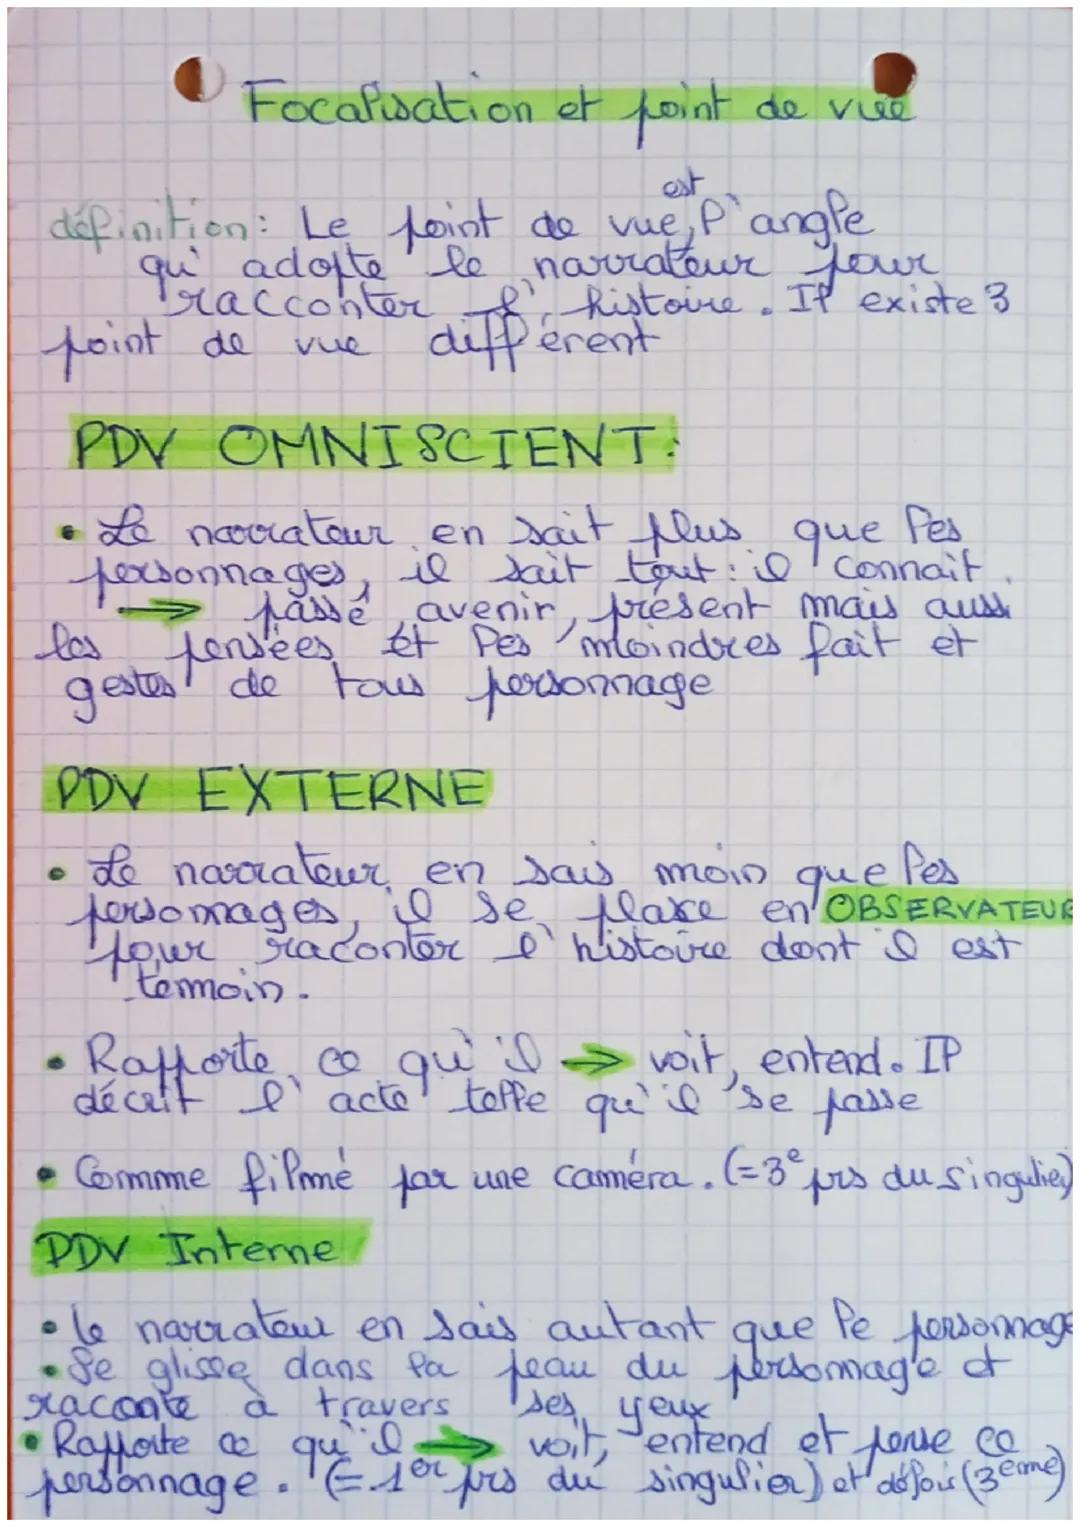 Focalisation et point de vue
est
définition: Le point de vue, l'angle
qui adopte le narrateur pour
racconter l'histoire. Il existe 3
point de vue différent
PDV OMNISCIENT:
• Le narrateur en sait plus que les
personnages, il sait tout: il connait
→ passé, avenir, présent mais aussi
les pensées et les moindres fait et
gestes de tous personnage
PDV EXTERNE
• Le narrateur en sais moin que les
personnages, il se place en OBSERVATEUR
pour raconter l'histoire dont il est
temoin.
• Rapporte ce qu'il → voit, entend. Il
décrit l'acte telle qu'il se passe
• Comme filmé par une caméra. (=3e prs du singulier)
PDV Interne
• le narrateur en sais autant que le personnage
• Se glisse dans la peau du personnage et
raconte à travers ses yeux
• Rapporte ce qu'il → voit, entend et pense ce
personnage. (=1er prs du singulier) et défois (3eme)